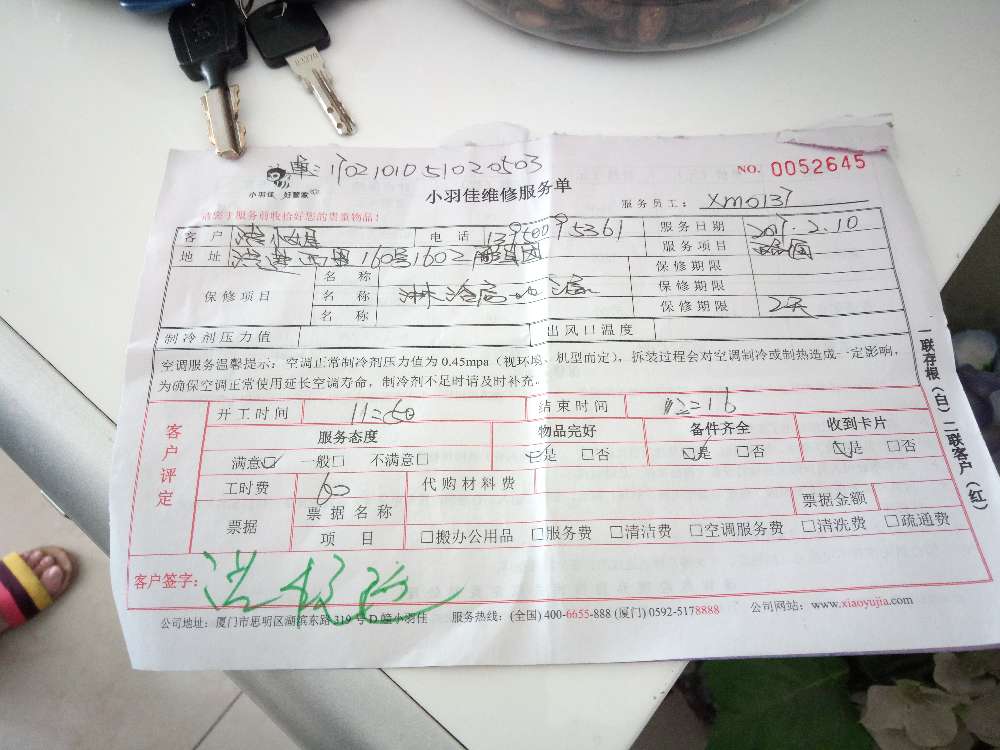 单：1702101051020503
小羽佳 好管家
小羽佳维修服务单
NO. 0052645
请您于服务前收拾好您的贵重物品！
服务员工：xm0137
客户 洪小姐 电话 13950095361 服务日期 2017.2.10
地址 160号1602 服务项目
名称 保修期限
保修项目 名称 保修期限
名称 保修期限 2天
制冷剂压力值 出风口温度
空调服务温馨提示：空调正常制冷剂压力值为 0.45mpa（视环境、机型而定），拆装过程会对空调制冷或制热造成一定影响，
为确保空调正常使用延长空调寿命，制冷剂不足时请及时补充。
客户评定
开工时间 结束时间
服务态度 物品完好 备件齐全 收到卡片
满意□ 一般□ 不满意□ □是 □否 □是 □否 □是 □否
工时费 60 代购材料费
票据 票据名称 票据金额
项目 □搬办公用品 □服务费 □清洁费 □空调服务费 □清洗费 □疏通费
客户签字：
公司地址：厦门市思明区湖滨东路 319 号 D 幢小羽佳 服务热线：(全国) 400-6655-888 (厦门) 0592-5178888 公司网站：www.xiaoyujia.com
一联存根（白）二联客户（红）